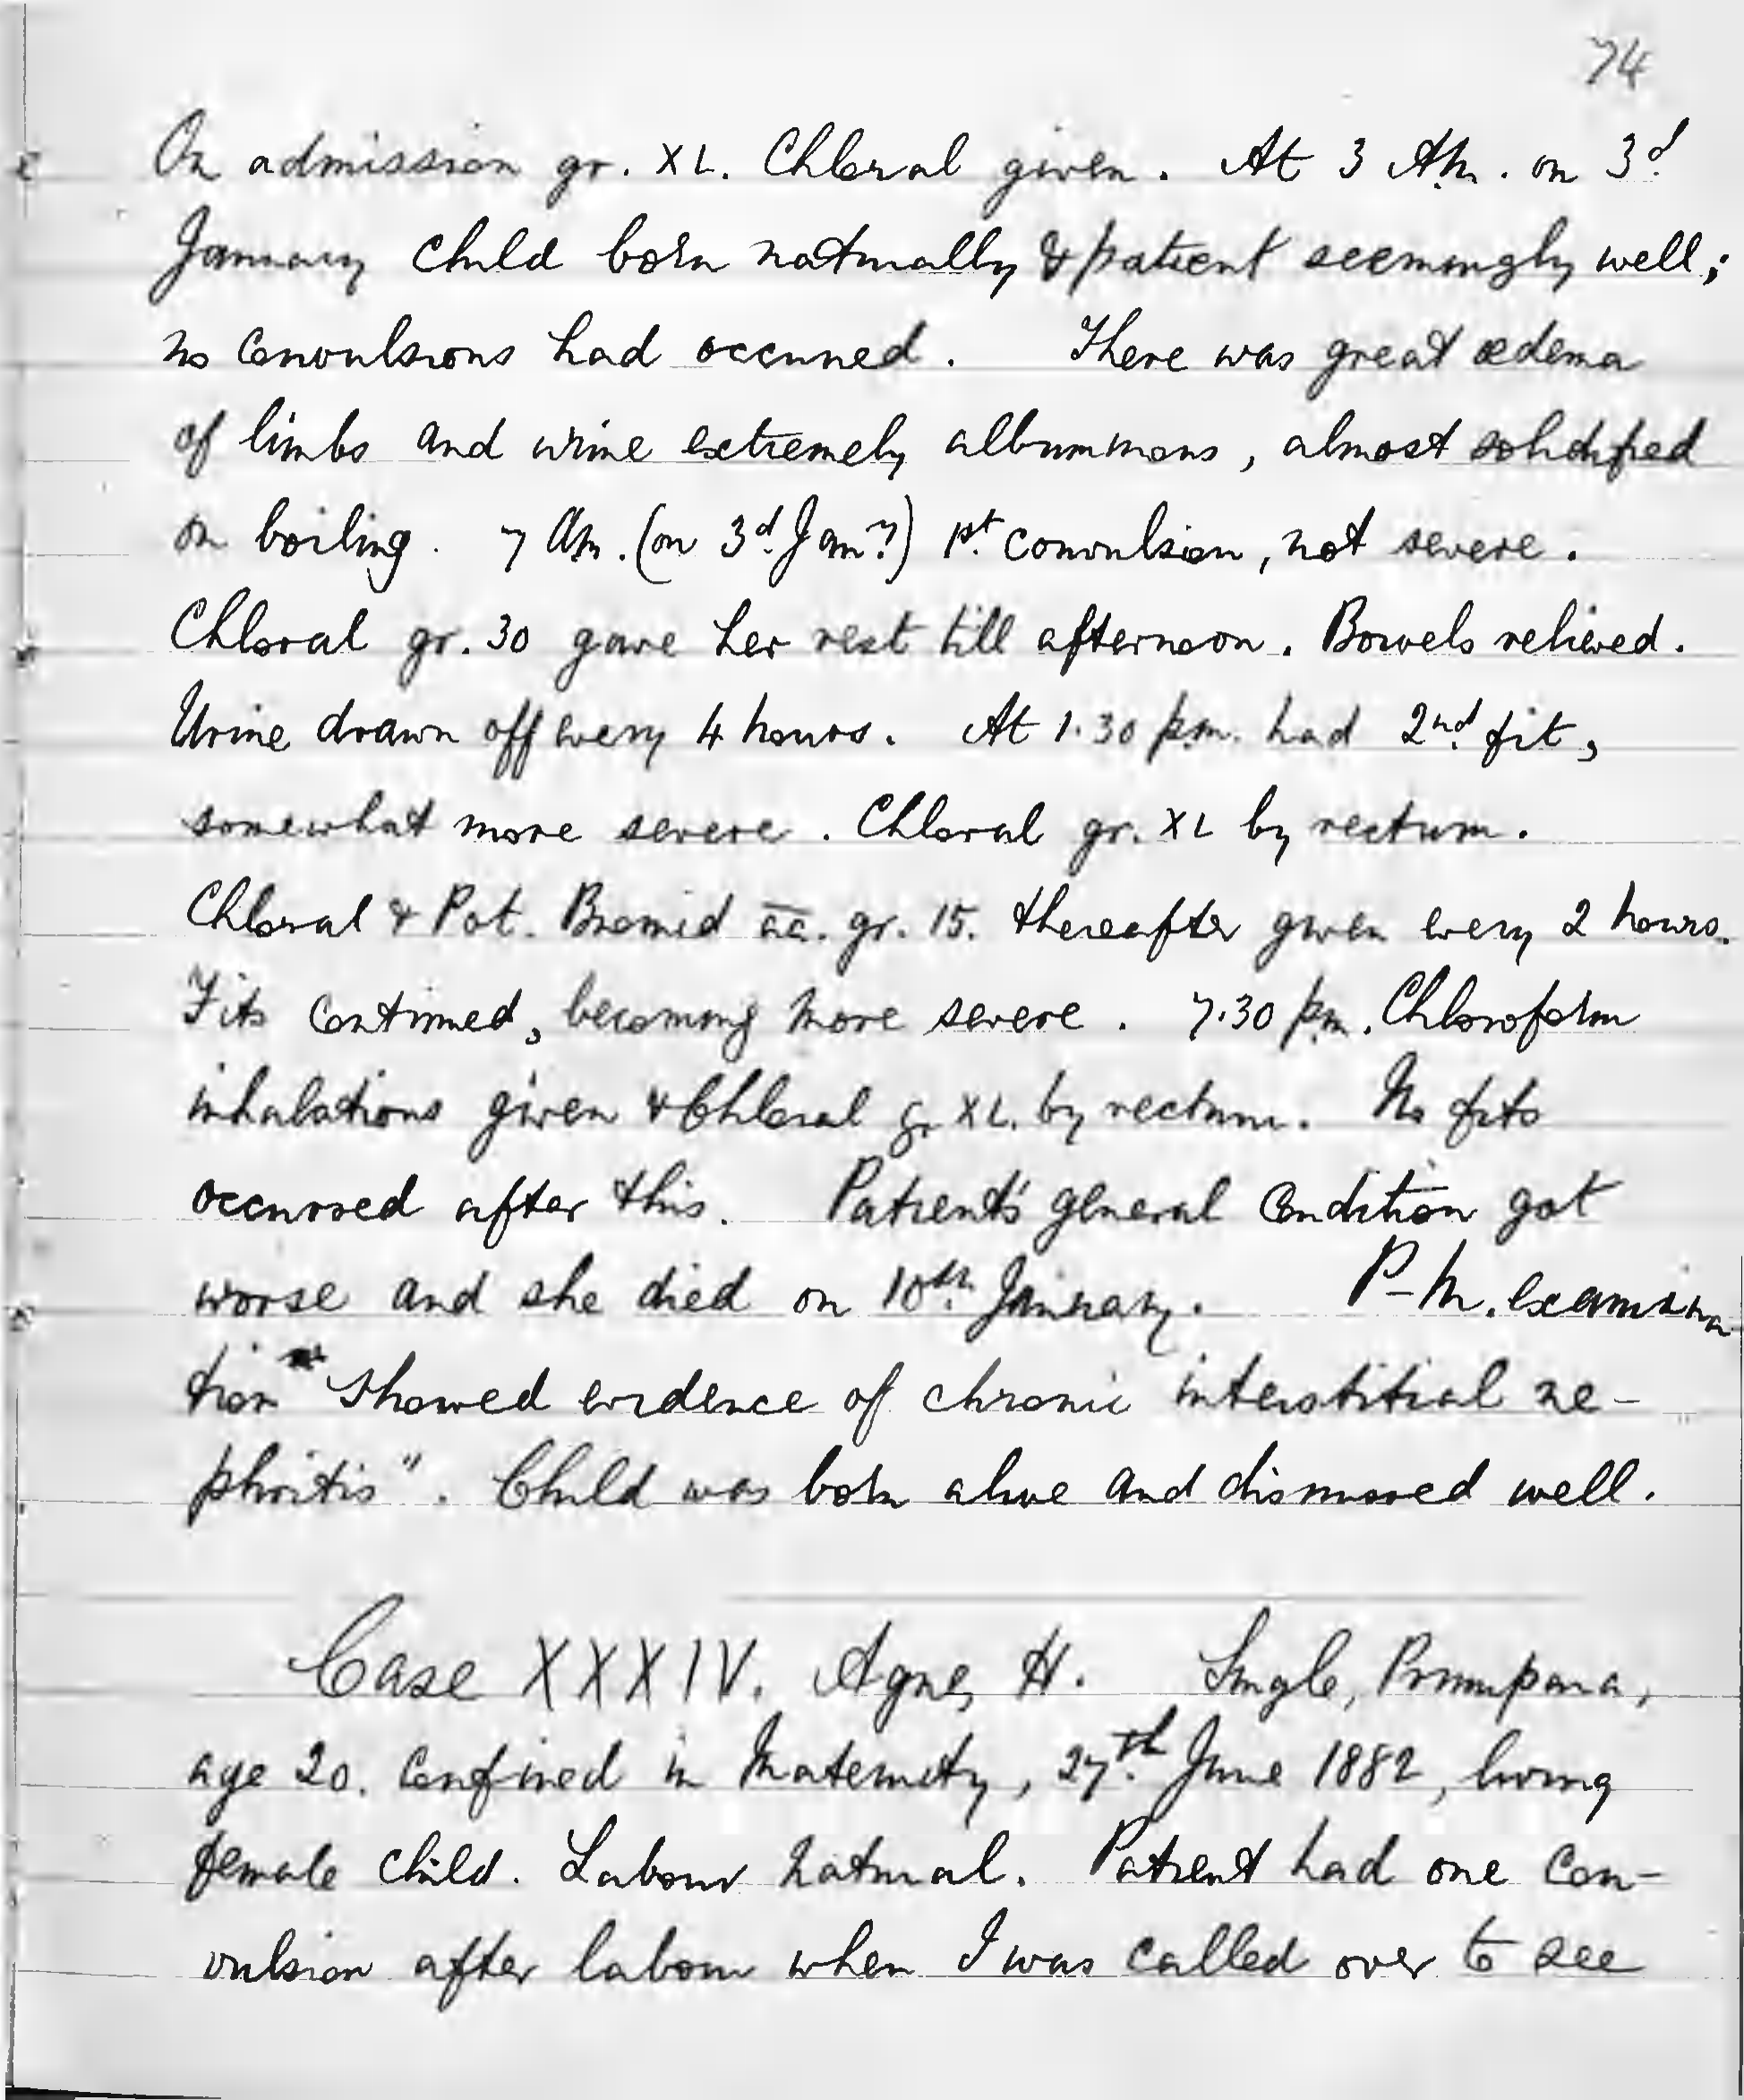 74
On admission gr. XL. Chloral given. At 3 A.m. on 3d.
January child born naturally & patient seemingly well;
no convulsions had occurred. There was great œdema
of limbs and urine extremely albuminous, almost solidified
on boiling. 7 Am. (on 3d. Jany.) 1st. convulsion, not severe.
Chloral gr. 30 gave her rest till afternoon. Bowels relieved.
Urine drawn off every 4 hours. At 1.30 p.m. had 2nd. fit,
somewhat more severe. Chloral gr. XL by rectum.
Chloral & Pot. Bromid āā. gr. 15. thereafter given every 2 hours.
Fits continued, becoming more severe. 7.30 p.m. Chloroform
inhalations given & Chloral gr XL. by rectum. No fits
occurred after this. Patient's general condition got
worse and she died on 10th. January. P-M. examina-
tion "showed evidence of chronic interstitial ne-
phritis". Child was born alive and dismissed well.
Case XXXIV. Agnes H. Single, Primipara,
age 20. Confined in Maternity, 27th. June 1882, living
female child. Labour natural. Patient had one con-
vulsion after labour when I was called over to see